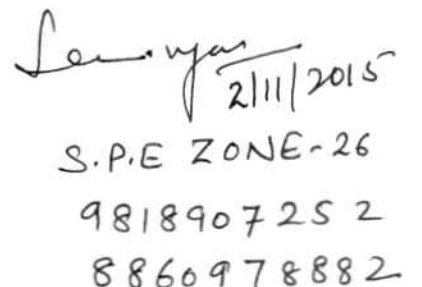 2/11/2015
S.P.E ZONE-26
9818907252
8860978882